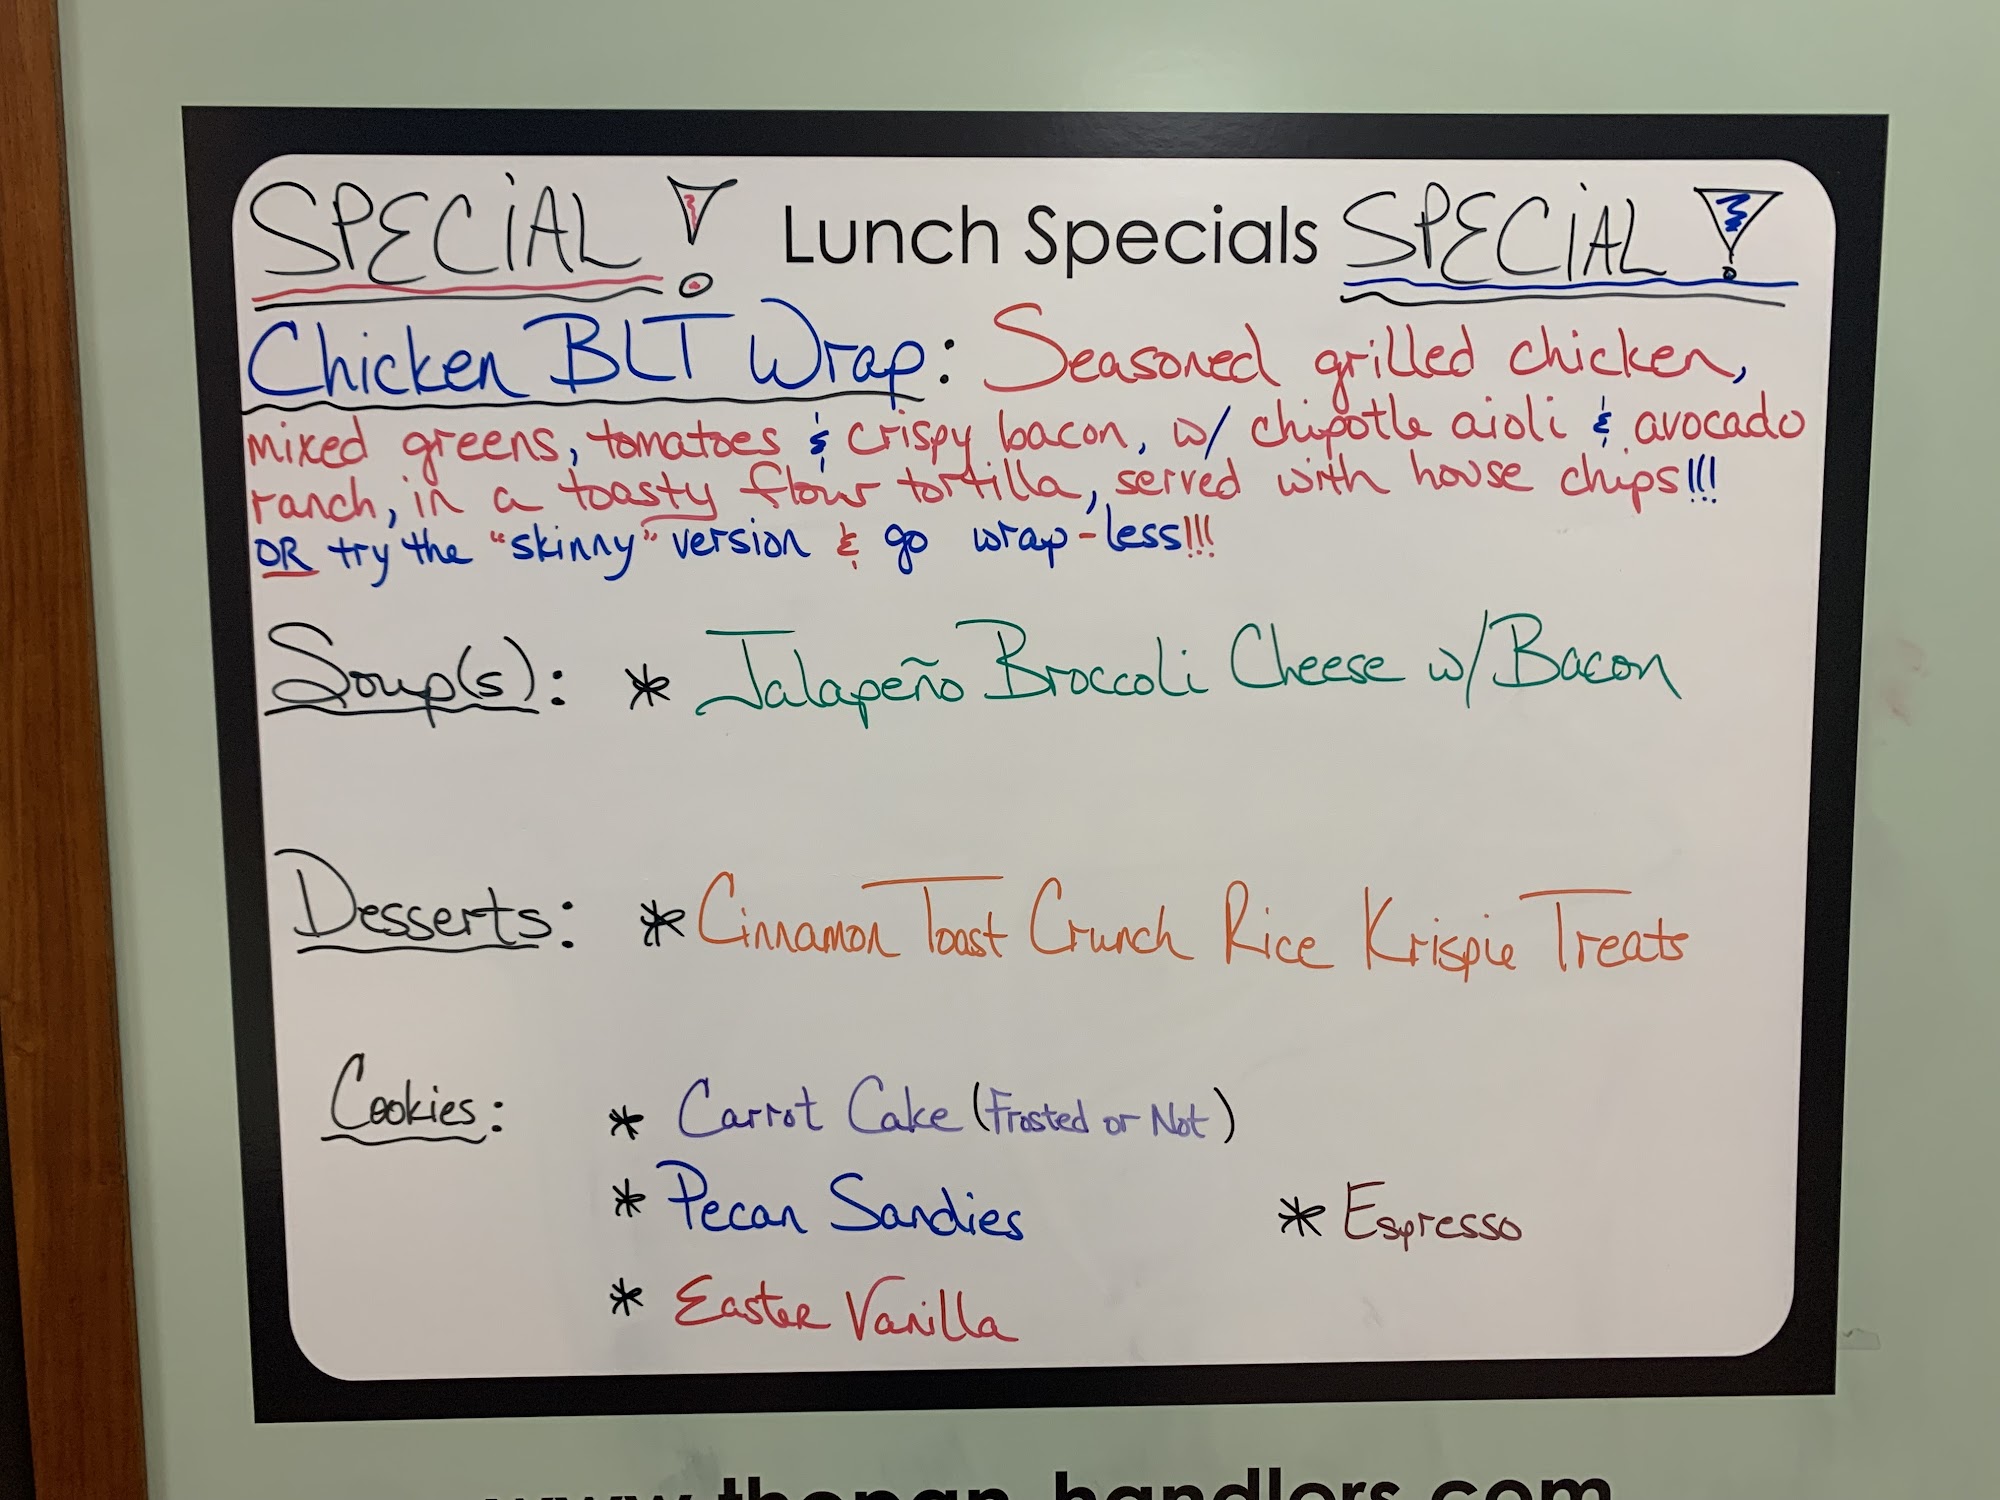 SPECiAL! Lunch Specials SPECiAL!
Chicken BLT Wrap: Seasoned grilled chicken,
mixed greens, tomatoes & crispy bacon, w/ chipotle aioli & avocado
ranch, in a toasty flour tortilla, served with house chips!!!
OR try the "skinny" version & go wrap-less!!!
Soup(s): * Jalapeño Broccoli Cheese w/Bacon
Desserts: * Cinnamon Toast Crunch Rice Krispie Treats
Cookies: * Carrot Cake (Frosted or Not)
* Pecan Sandies * Espresso
* Easter Vanilla
www.thepan-handlers.com